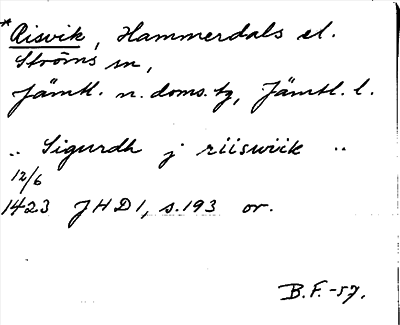 *Risvik, Hammerdals el.
Ströms sn,
Jämtl. n. doms. tg, Jämtl. l.
„ Sigurdh j riiswiik „
12/6
1423 JHD 1, s. 193 or.
B.F.-57.